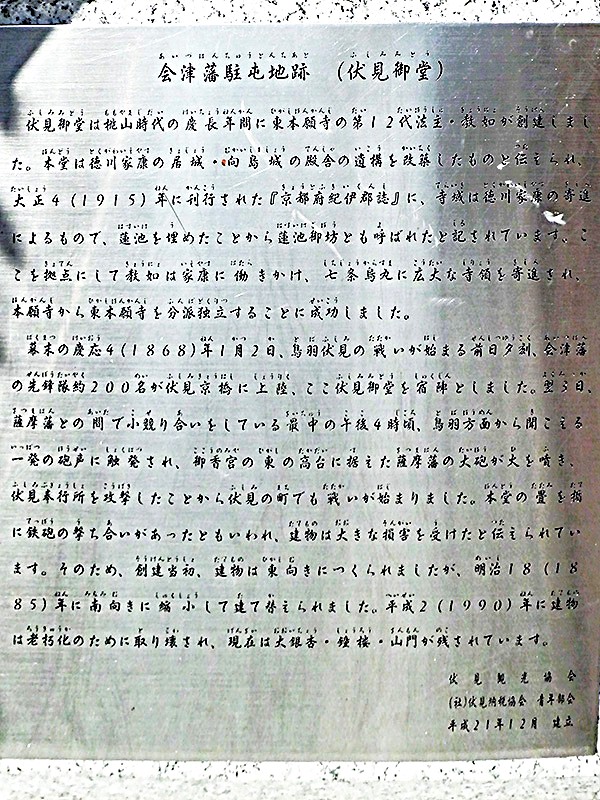 会津藩駐屯地跡　（伏見御堂）
伏見御堂は桃山時代の慶長年間に東本願寺の第12代法主・教如が創建しまし
た。本堂は徳川家康の居城・向島城の殿舎の遺構を改築したものと伝えられ、
大正4（1915）年に刊行された『京都府紀伊郡誌』に、寺城は徳川家康の寄進
によるもので、蓮池を埋めたことから蓮池御坊とも呼ばれたと記されています。こ
こを拠点にして教如は家康に働きかけ、七条烏丸に広大な寺領を寄進され、
本願寺から東本願寺を分派独立することに成功しました。
幕末の慶応4（1868）年1月2日、鳥羽伏見の戦いが始まる前日夕刻、会津藩
の先鋒隊約200名が伏見京橋に上陸、ここ伏見御堂を宿陣としました。翌3日、
薩摩藩との間で小競り合いをしている最中の午後4時頃、鳥羽方面から聞こえる
一発の砲声に触発され、御香宮の東の高台に据えた薩摩藩の大砲が火を噴き、
伏見奉行所を攻撃したことから伏見の町でも戦いが始まりました。本堂の畳を楯
に鉄砲の撃ち合いがあったともいわれ、建物は大きな損害を受けたと伝えられてい
ます。そのため、創建当初、建物は東向きにつくられましたが、明治18（18
85）年に南向きに縮小して建て替えられました。平成2（1990）年に建物
は老朽化のために取り壊され、現在は大銀杏・鐘楼・山門が残されています。
伏見観光協会
（社）伏見納税協会　青年部会
平成21年12月　建立